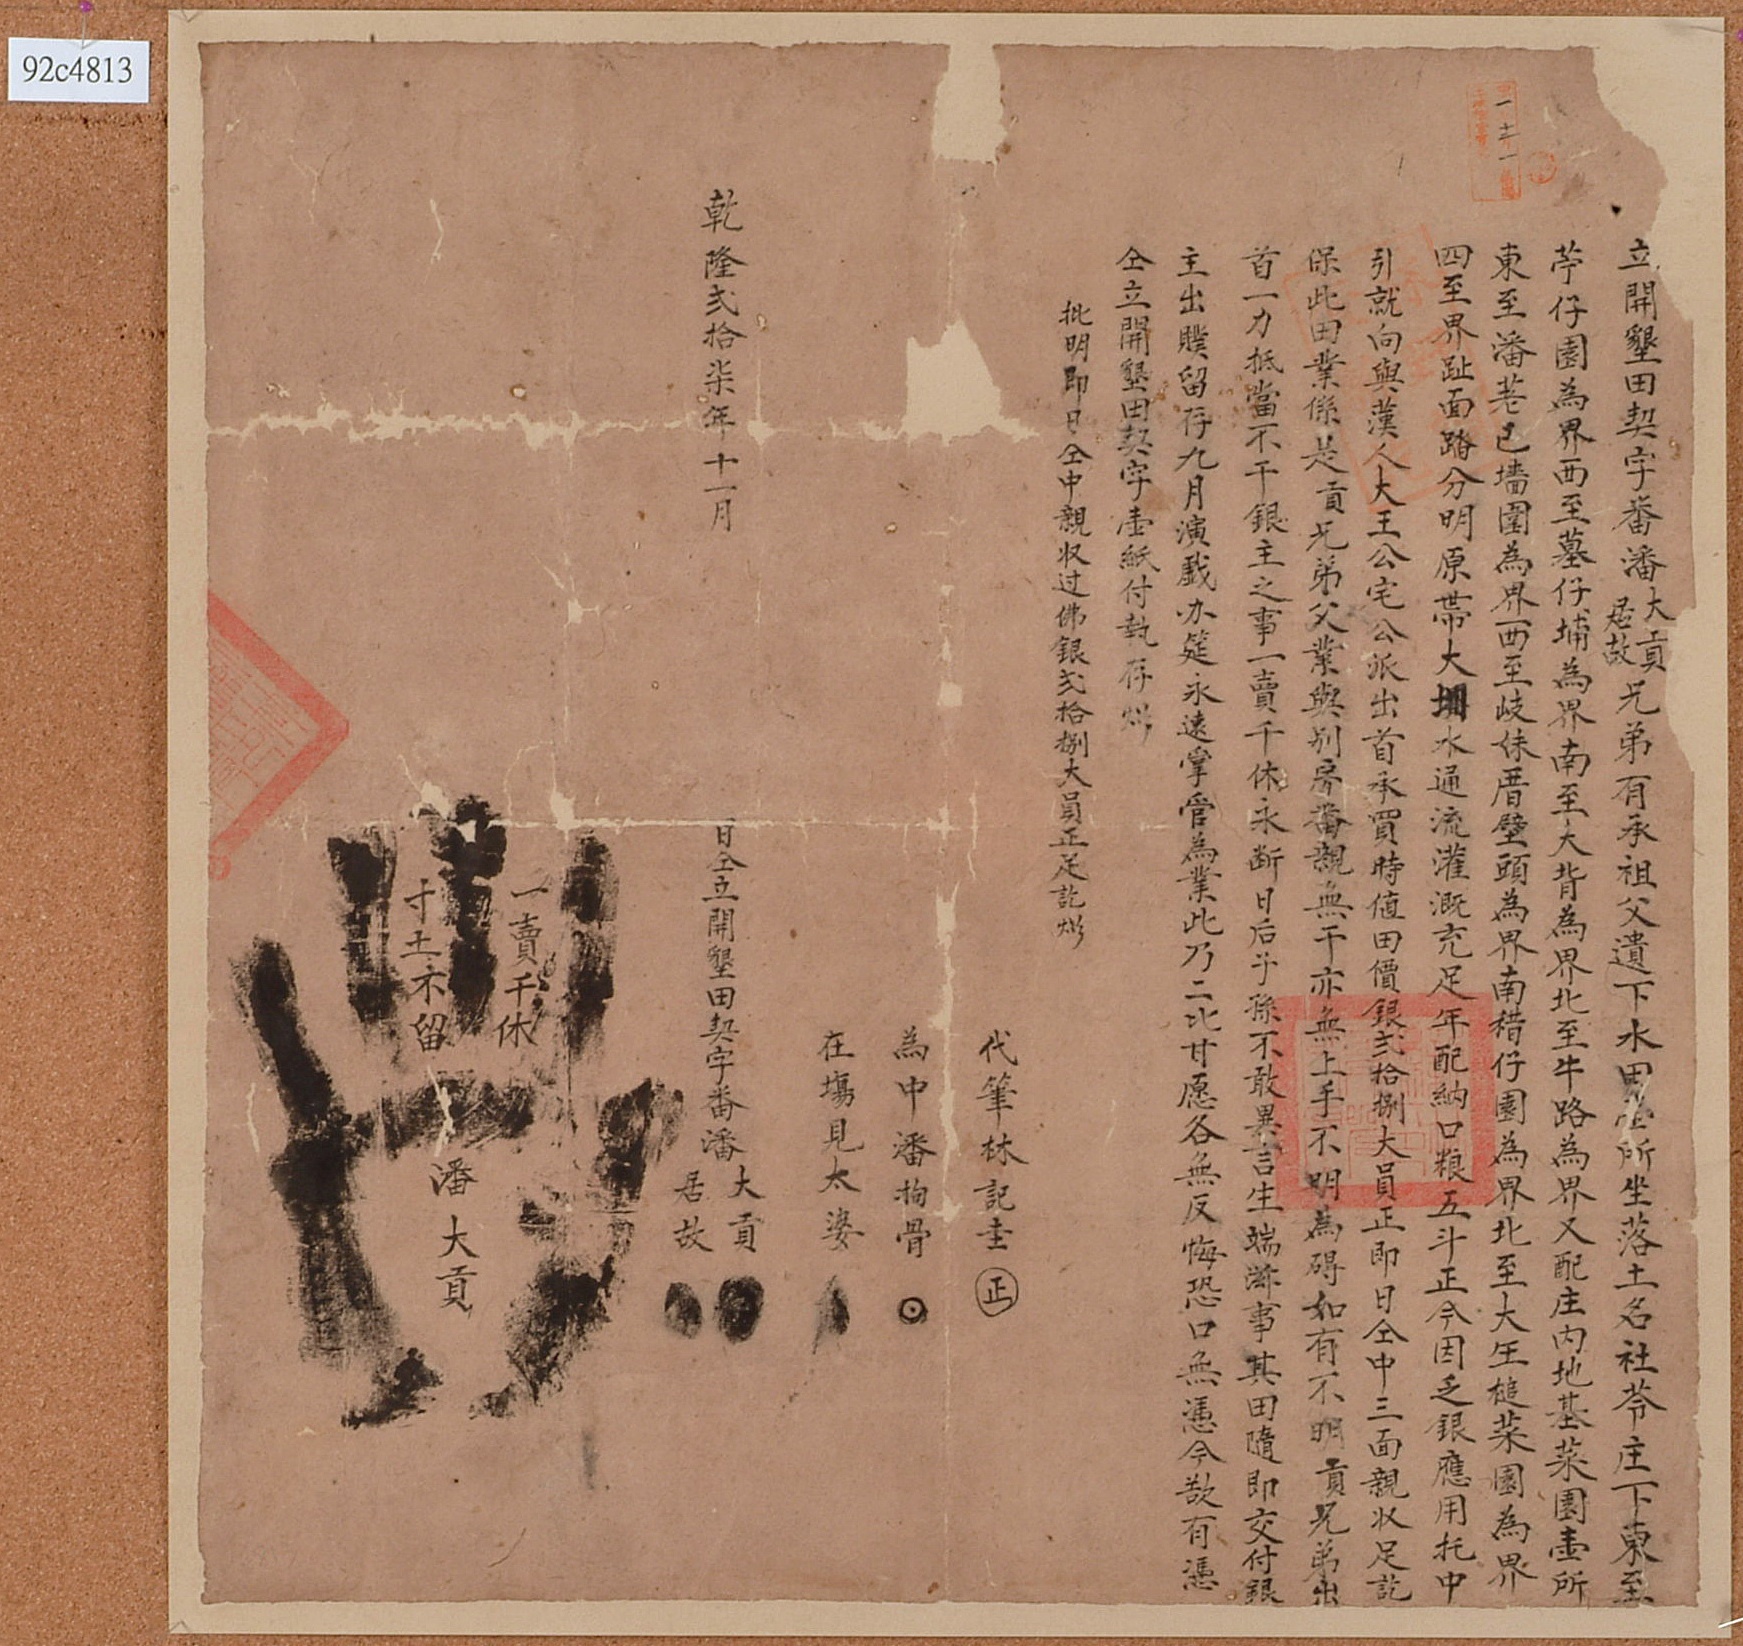 92c4813
立開墾田契字番潘大貢居故兄弟有承祖父遺下水田壹所坐落土名社苓庄下東至
苧仔園為界西至墓仔埔為界南至大背為界北至牛路為界又配庄内地基菜園壹所
東至潘荖已墻圍為界西至歧妹厝壁頭為界南稽仔園為界北至大王槌菜園為界
四至界趾面踏分明原帯大圳水通流灌溉充足年配納口粮五斗正今因乏銀應用托中
引就向與漢人大王公宅公派出首承買時值田價銀弍拾捌大員正即日仝中三面親収足訖
保此田業係是貢兄弟父業與别房番親無干亦無上手不明為碍如有不明貢兄弟出
首一力抵當不干銀主之事一賣千休永断日后子孫不敢異言生端滋事其田隨即交付銀
主出贌留存九月演戲办筵永遠掌管為業此乃二比甘愿各無反悔恐口無憑今欲有憑
仝立開墾田契字壹紙付執存炤
批明即日仝中親収过佛銀弍拾捌大員正足訖炤
代筆林記圭 正
為中潘拘骨
在塲見太婆
乾隆弍拾柒年十一月 日仝立開墾田契字番潘大貢居故
一賣千休
寸土不留
潘大貢